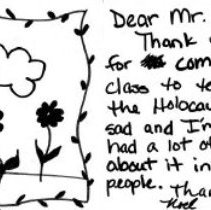 Dear Mr.
Thank
for com
class to te
the Holoca
sad and I'm
had a lot o
about it in
people. Tha